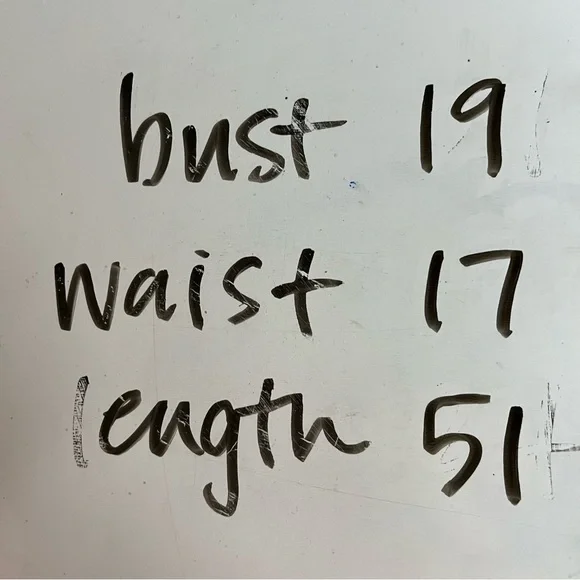 bust 19
waist 17
length 51